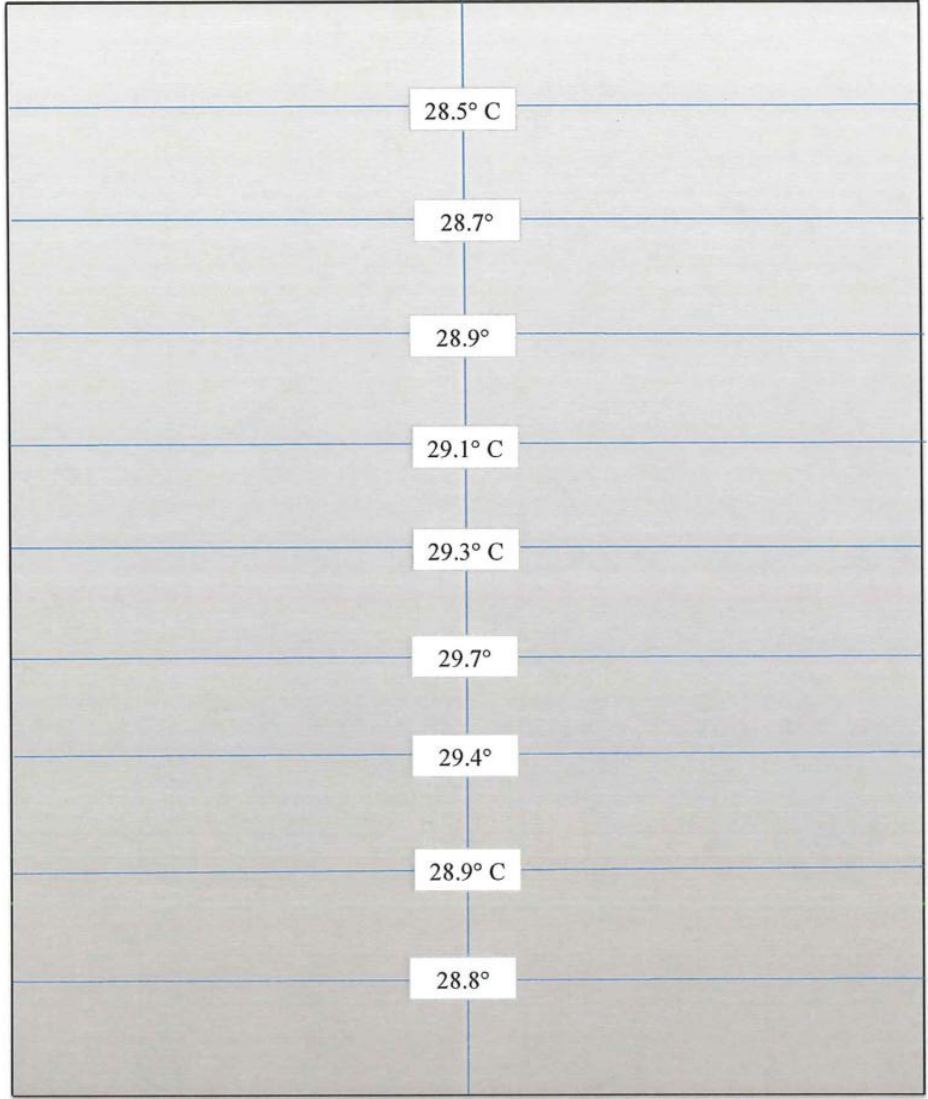 28.5° C
28.7°
28.9°
29.1° C
29.3° C
29.7°
29.4°
28.9° C
28.8°